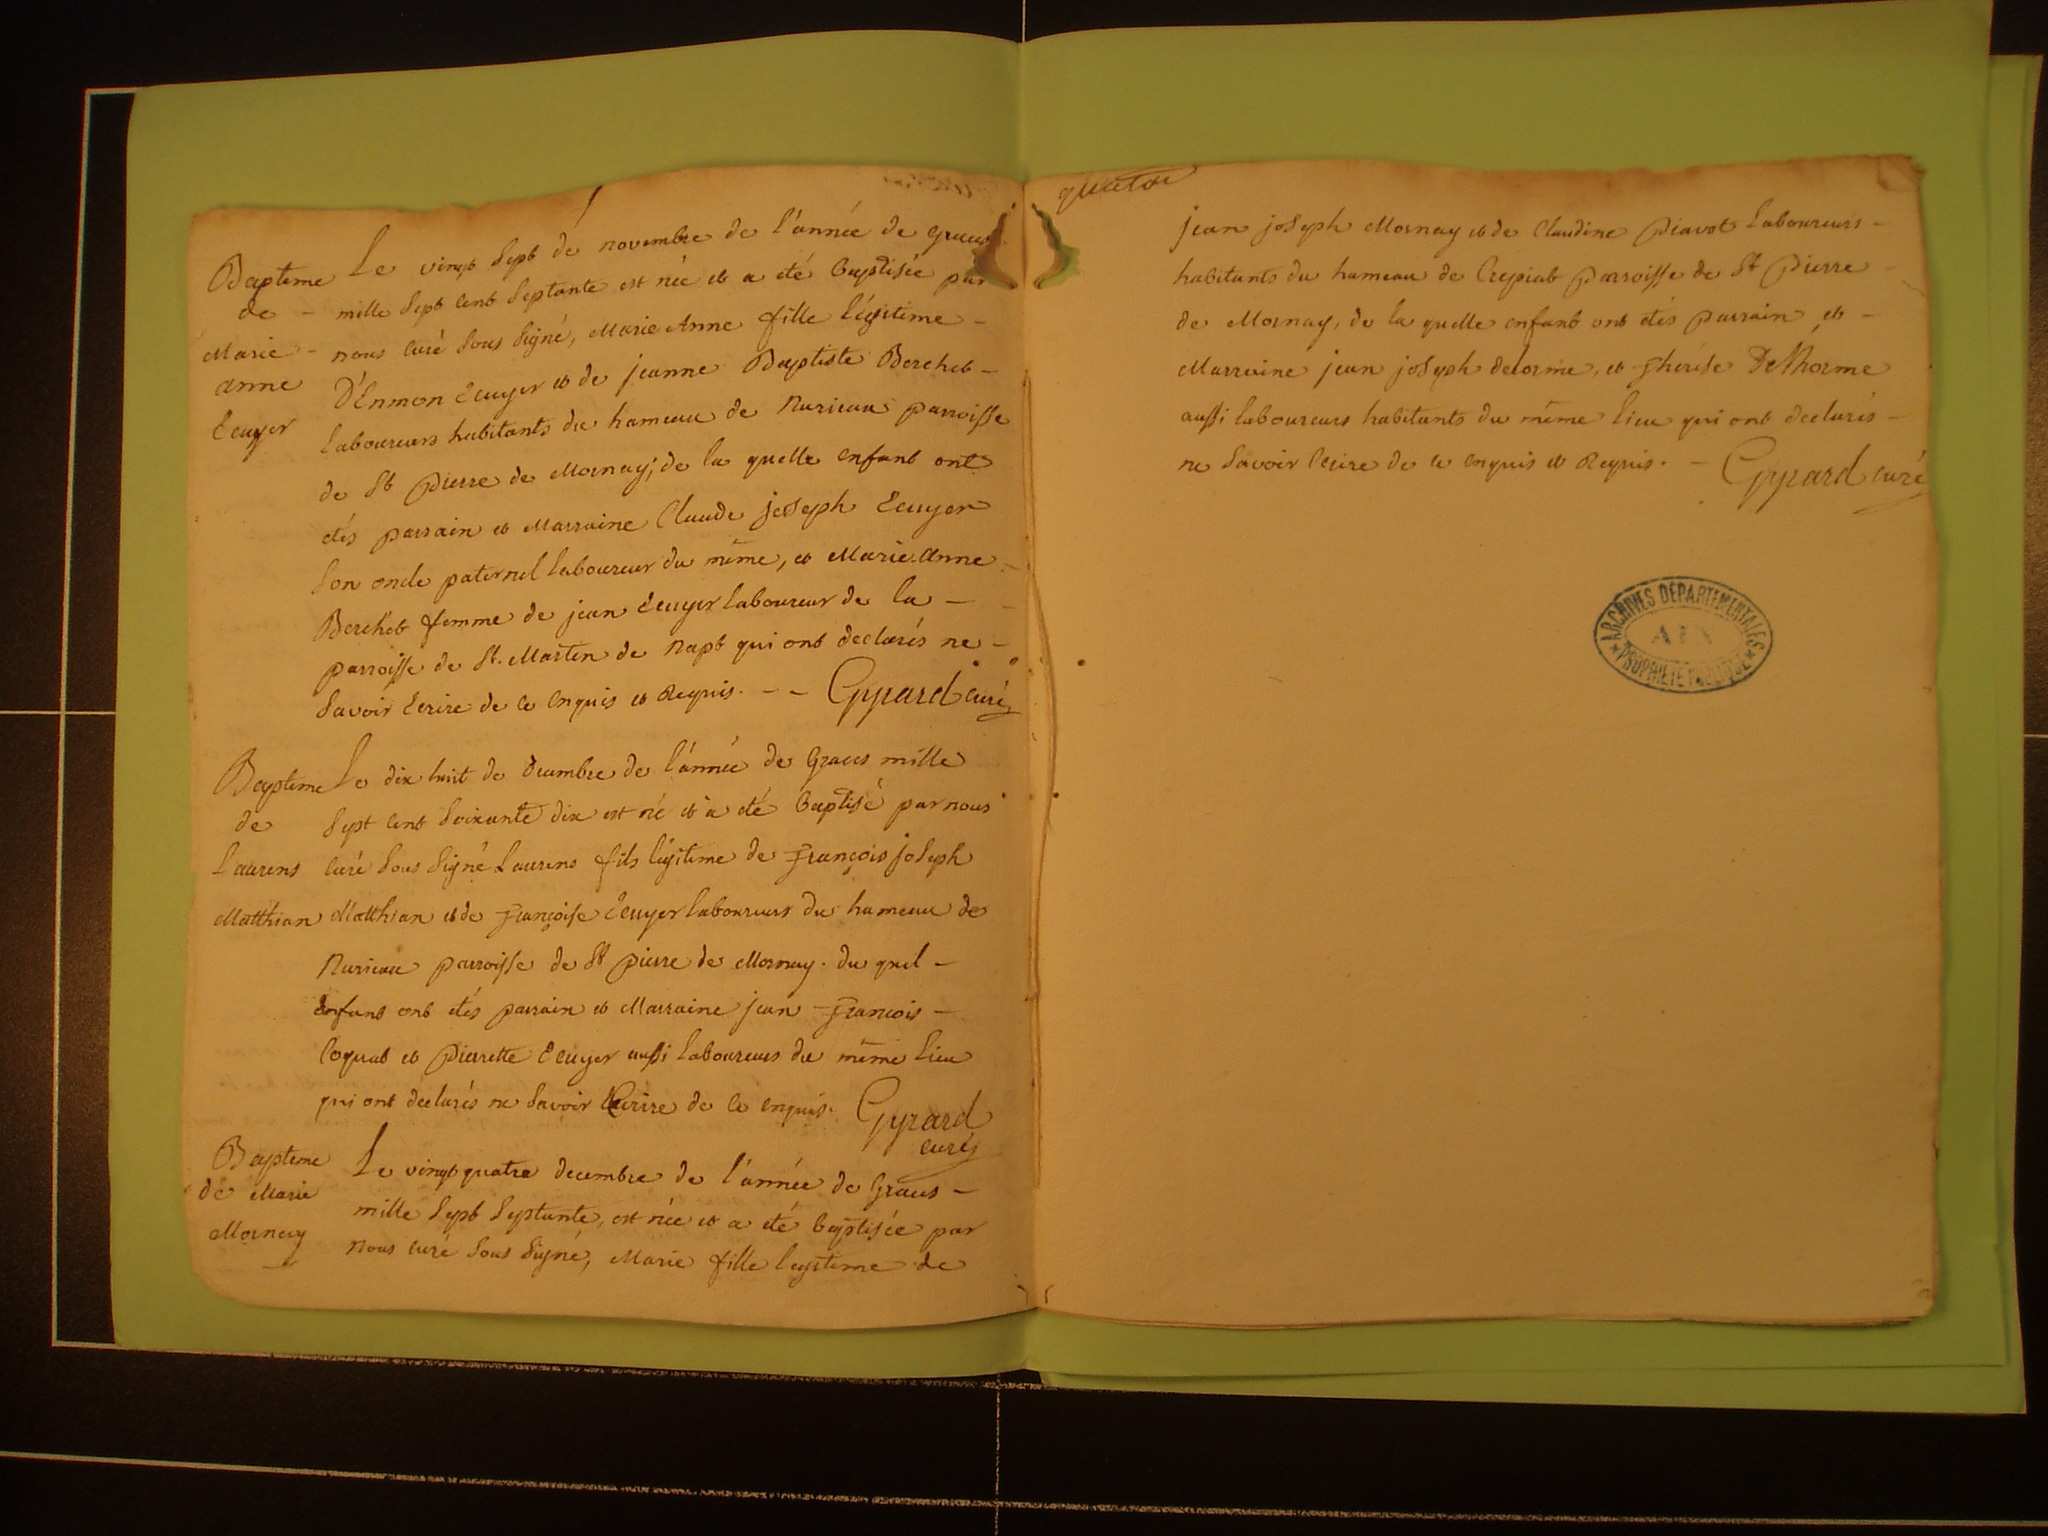 Bapteme
de -
Marie -
anne
Ecuyer
Le vingt sept de novembre de l'année de graces
mille sept cent septante est née et a été baptisée par
nous curé sous signé, Marie Anne fille légitime -
D'Enmon Ecuyer et de jeanne Baptiste Berchet -
laboureurs habitants du hameau de Nurieau parroisse
de St Pierre de Mornay; de la quelle enfant ont
étés parrain et Marraine Claude joseph Ecuyer
son oncle paternel laboureur du même, et Marie Anne -
Berchet femme de jean Ecuyer laboureur de la -
parroisse de St. Martin de Napt qui ont declarés ne -
savoir Ecrire de ce enquis et Requis. - - Gyrard curé
Bapteme
de
Laurens
Matthian
Le dix huit de decembre de l'année de Graces mille
sept cent soixante dix est né et a été baptisé par nous
curé sous signé Laurens fils légitime de François joseph
Matthian et de Françoise Ecuyer laboureurs du hameau de
Nurieau parroisse de St pierre de Mornay. du quel -
Enfant ont étés parrain et Marraine jean - François -
Coquat et Pierrette Ecuyer aussi laboureurs du même lieu
qui ont déclarés ne savoir Ecrire de ce enquis. Gyrard
curé
Bapteme
de Marie
Mornay
Le vingt quatre decembre de l'année de Graces -
mille sept septante, est née et a été baptisée par
nous curé sous signé, Marie fille legitime de
jean joseph Mornay et de Claudine Piavot laboureurs -
habitants du hameau de Crepiat parroisse de St Pierre -
de Mornay, de la quelle enfant ont étés parrain et -
Marraine jean joseph delorme, et Thérése Delhorme
aussi laboureurs habitants du même lieu qui ont declarés -
ne savoir Ecrire de ce enquis et Requis. - Gyrard curé
ARCHIVES DÉPARTEMENTALES
AIN
PROPRIÉTÉ PUBLIQUE